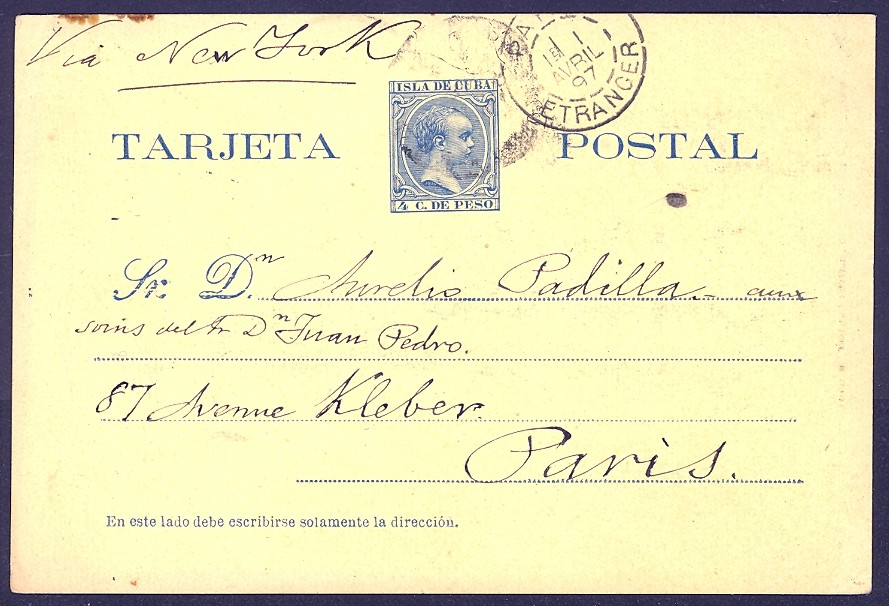 Via New York
PARIS
1 AVRIL 97
ETRANGER
ISLA DE CUBA
4 C. DE PESO
TARJETA POSTAL
Sr. Dn. Aurelio Padilla — aux
soins del Sr Dn Juan Pedro.
87 Avenue Kleber.
Paris.
En este lado debe escribirse solamente la dirección.